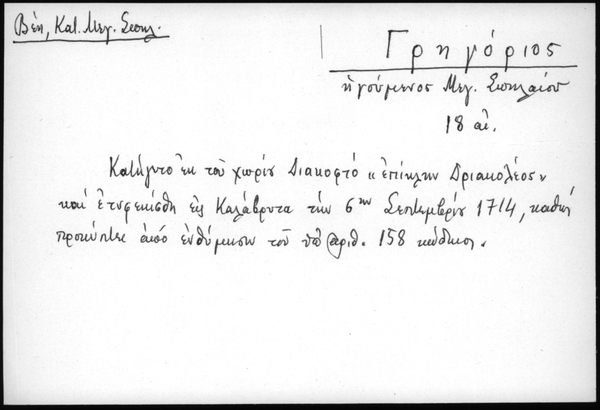 Βέη, Κατ. Μεγ. Σπηλ.
Γρηγόριος
ἡγούμενος Μεγ. Σπηλαίου
18 αἰ.
Κατήγετο ἐκ τοῦ χωρίου Διακοφτό «ἐπίκλην Δριακολέος»
καί ἐτυφεκίσθη εἰς Καλάβρυτα τήν 6ην Σεπτεμβρίου 1714, καθώς
προκύπτει ἀπό ἐνθύμησιν τοῦ ὑπ' ἀριθ. 158 κώδικος.